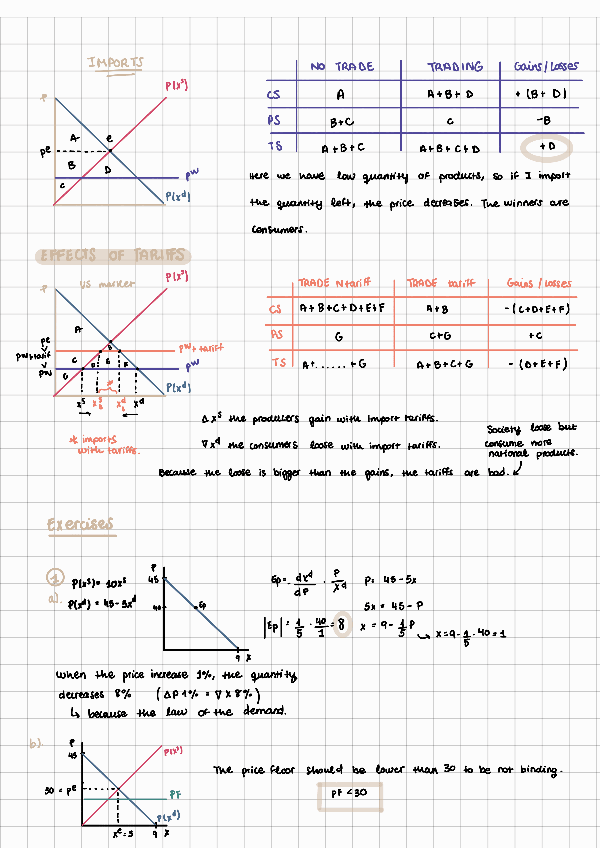 IMPORTS
P
P(x^s)
A
e
p^e
B
D
C
p^w
P(x^d)
NO TRADE TRADING Gains/Losses
CS A A+B+D + (B+D)
PS B+C C -B
TS A+B+C A+B+C+D +D
Here we have low quantity of products, so if I import
the quantity left, the price decreases. The winners are
consumers.
EFFECTS OF TARIFFS
US marker
P
P(x^s)
A
p^e
p^w+tarif
p^w+tariff
C
p^w
G
P(x^d)
x^s x^s x^d x^d
* imports
with tariffs.
TRADE N+ariff TRADE tariff Gains/Losses
CS A+B+C+D+E+F A+B -(C+D+E+F)
PS G C+G +C
TS A+......+G A+B+C+G -(D+E+F)
Δx^s the producers gain with import tariffs.
∇x^d the consumers loose with import tariffs.
Because the loose is bigger than the gains, the tariffs are bad.
Society loose but
consume more
national products.
Exercises
1
a).
P(x^s)= 10x^s
P(x^d) = 45-5x^d
P
45
40
Ep
9 x
Ep= dx^d/dP · P/x^d
|Ep| = 1/5 · 40/1 = 8
P= 45-5x
5x = 45-P
x = 9-1/5 P
x=9-1/5·40=1
When the price increase 1%, the quantity
decreases 8% (ΔP 1% = ∇x 8%)
↳ because the law of the demand.
b).
P
45
P(x^s)
30 = p^e
PF
P(x^d)
x^e=3 9 x
The price floor should be lower than 30 to be not binding.
PF <30